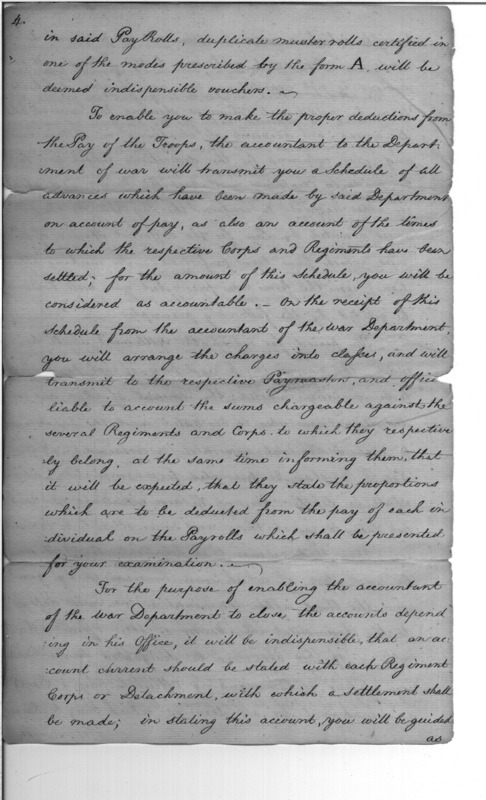 4.
in said Pay Rolls, duplicate muster rolls certified in
one of the modes prescribed by the form A. will be
deemed indispensible vouchers. ~
To enable you to make the proper deductions from
the Pay of the Troops, the accountant to the Depart-
ment of war will transmit you a Schedule of all
advances which have been made by said Department
on account of pay, as also an account of the times
to which the respective Corps and Regiments have been
settled; for the amount of this Schedule, you will be
considered as accountable. – On the receipt of this
Schedule from the accountant of the war Department,
you will arrange the charges into classes, and will
transmit to the respective Paymasters, and office
liable to account the sums chargeable against the
several Regiments and Corps. to which they respective
:ly belong, at the same time informing them, that
it will be expected, that they state the proportions
which are to be deducted from the pay of each in
:dividual on the Payrolls which shall be presented
for your examination. ~
For the purpose of enabling the accountant
of the war Department to close the accounts depend
:ing in his Office, it will be indispensible, that an ac:
:count current should be stated with each Regiment
Corps or Detachment, with which a settlement shall
be made; in stating this account, you will be guided
as